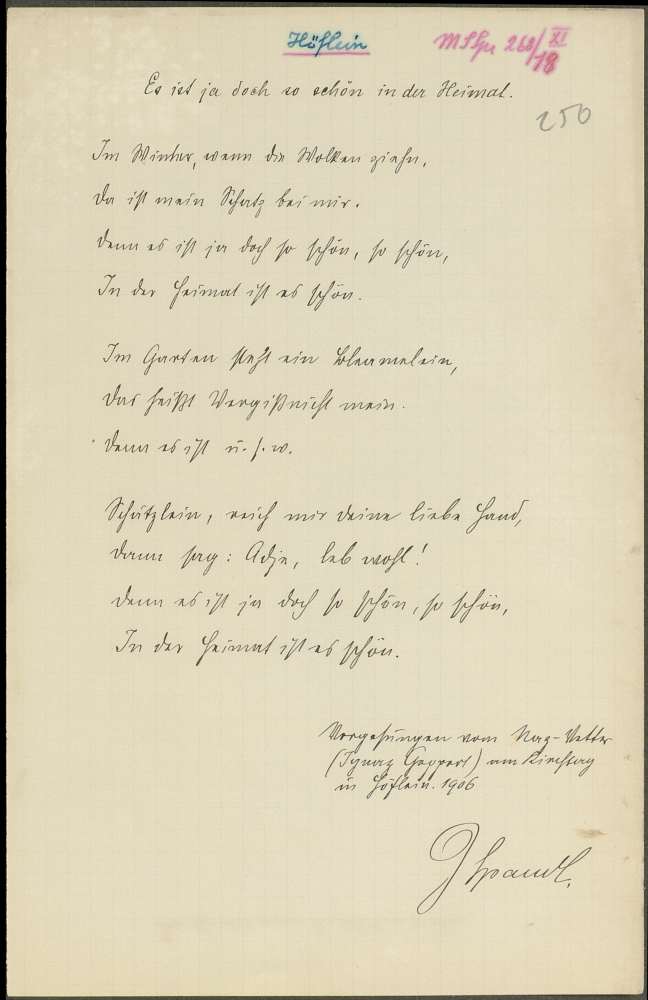 Höflein
268/XI
18
Es ist ja doch so schön in der Heimat.
250
Im Winter, wenn die Wolken ziehn,
Da ist mein Schatz bei mir.
Denn es ist ja doch so schön, so schön,
In der Heimat ist es schön.
Im Garten steht ein Bleamelein,
Das heißt Vergißnicht mein.
Denn es ist u. s. w.
Schätzlein, reich mir deine liebe Hand,
Dann sag: Adje, leb wohl!
Denn es ist ja doch so schön, so schön,
In der Heimat ist es schön.
Vorgesungen vom Naz-Vetter
(Ignaz Geppert) am Kirchtag
in Höflein. 1906